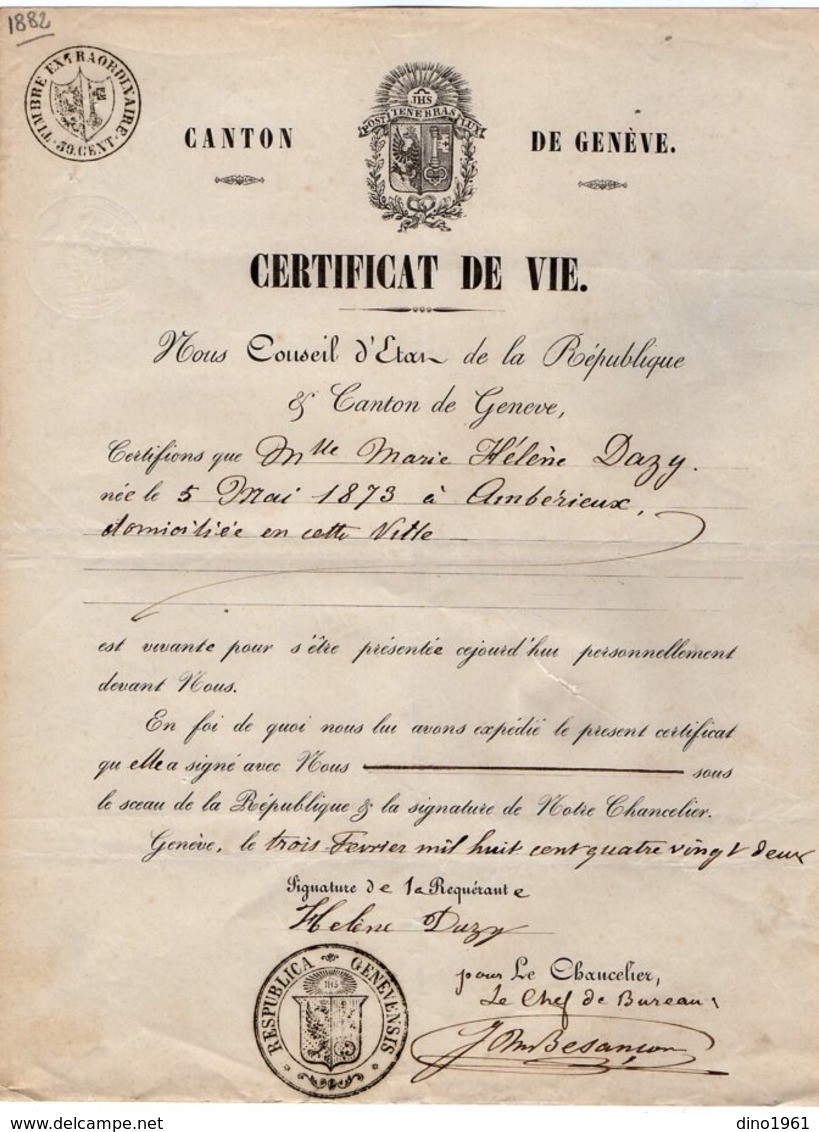 1882
TIMBRE EXTRAORDINAIRE
30. CENT.
JHS
POST TENEBRAS LUX
CANTON DE GENÈVE.
CERTIFICAT DE VIE.
Nous Conseil d'Etat de la République
& Canton de Geneve,
Certifions que Mlle Marie Hélène Dazy.
née le 5 Mai 1873 à Ambérieux,
domiciliée en cette Ville
est vivante pour s'être présentée cejourd'hui personnellement
devant Nous.
En foi de quoi nous lui avons expédié le present certificat
qu'elle a signé avec Nous sous
le sceau de la République & la signature de Notre Chancelier.
Genève, le trois Fevrier mil huit cent quatre vingt deux
Signature de la Requérante
Helène Dazy
RESPUBLICA GENEVENSIS
pour Le Chancelier,
Le Chef de Bureau
Besançon
dino1961